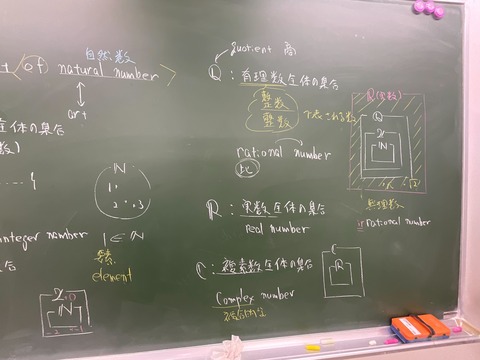 自然数
of natural number
art
全体の集合
数)
ℕ
1.
2. .3
integer number
1 ∈ ℕ
要素
element
ℤ .0
ℕ
quotient 商
ℚ: 有理数全体の集合
整数
整数
で表される数
rational number
比
ℝ: 実数全体の集合
real number
ℂ: 複素数全体の集合
complex number
ℝ(実数)
ℚ
ℤ
ℕ
√2
無理数
irrational number
ℂ
ℝ